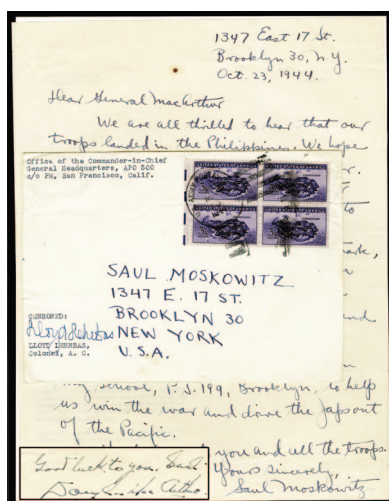 1347 East 17 St.
Brooklyn 30, N.Y.
Oct. 23, 1944.
Dear General MacArthur
We are all thrilled to hear that our
troops landed in the Philippines. We hope
Office of the Commander-in-Chief
General Headquarters, APO 500
c/o PM, San Francisco, Calif.
UNITED STATES POSTAGE
UNITED STATES POSTAGE
to
SAUL MOSKOWITZ
1347 E. 17 ST.
BROOKLYN 30
NEW YORK
U.S.A.
CENSORED:
Lloyd Lehrbas
LLOYD LEHRBAS,
Colonel, A. C.
my school, P.S. 199, Brooklyn, to help
us win the war and drive the Japs out
of the Pacific.
you and all the troops.
Yours sincerely,
Saul Moskowitz
Good luck to you, Saul.
Douglas MacArthur